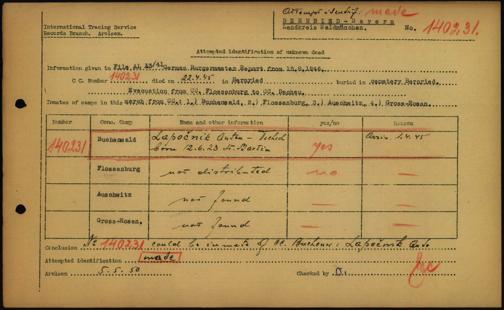 International Tracing Service
Records Branch. Arolsen.
Attempt identif. made
Landkreis Waldmünchen.
No. 140231.
Attempted identification of unknown dead
Information given in File Al 13/41 German Burgermaster Report from 18.9.1946.
CC Number 140231 died on 22.4.45 in Bernried buried in cemetery Bernried.
Evacuation from CC. Flossenburg to CC. Dachau.
Inmates of camps in this march from CC: 1.) Buchenwald, 2.) Flossenburg, 3.) Auschwitz, 4.) Gross-Rosen.
Number Conc. Camp Name and other information yes/no Remarks
140231 Buchenwald Lapočnik Anto - Tschech yes Arriv. 2.4.45
born 12.6.23 St. Bartin
Flossenburg not distributed no —
Auschwitz not found — —
Gross-Rosen. not found — —
Conclusion No 140231 could be inmate of CC. Buchenw.: Lapočnik Anto
Attempted identification made
Arolsen 5.5.50 Checked by